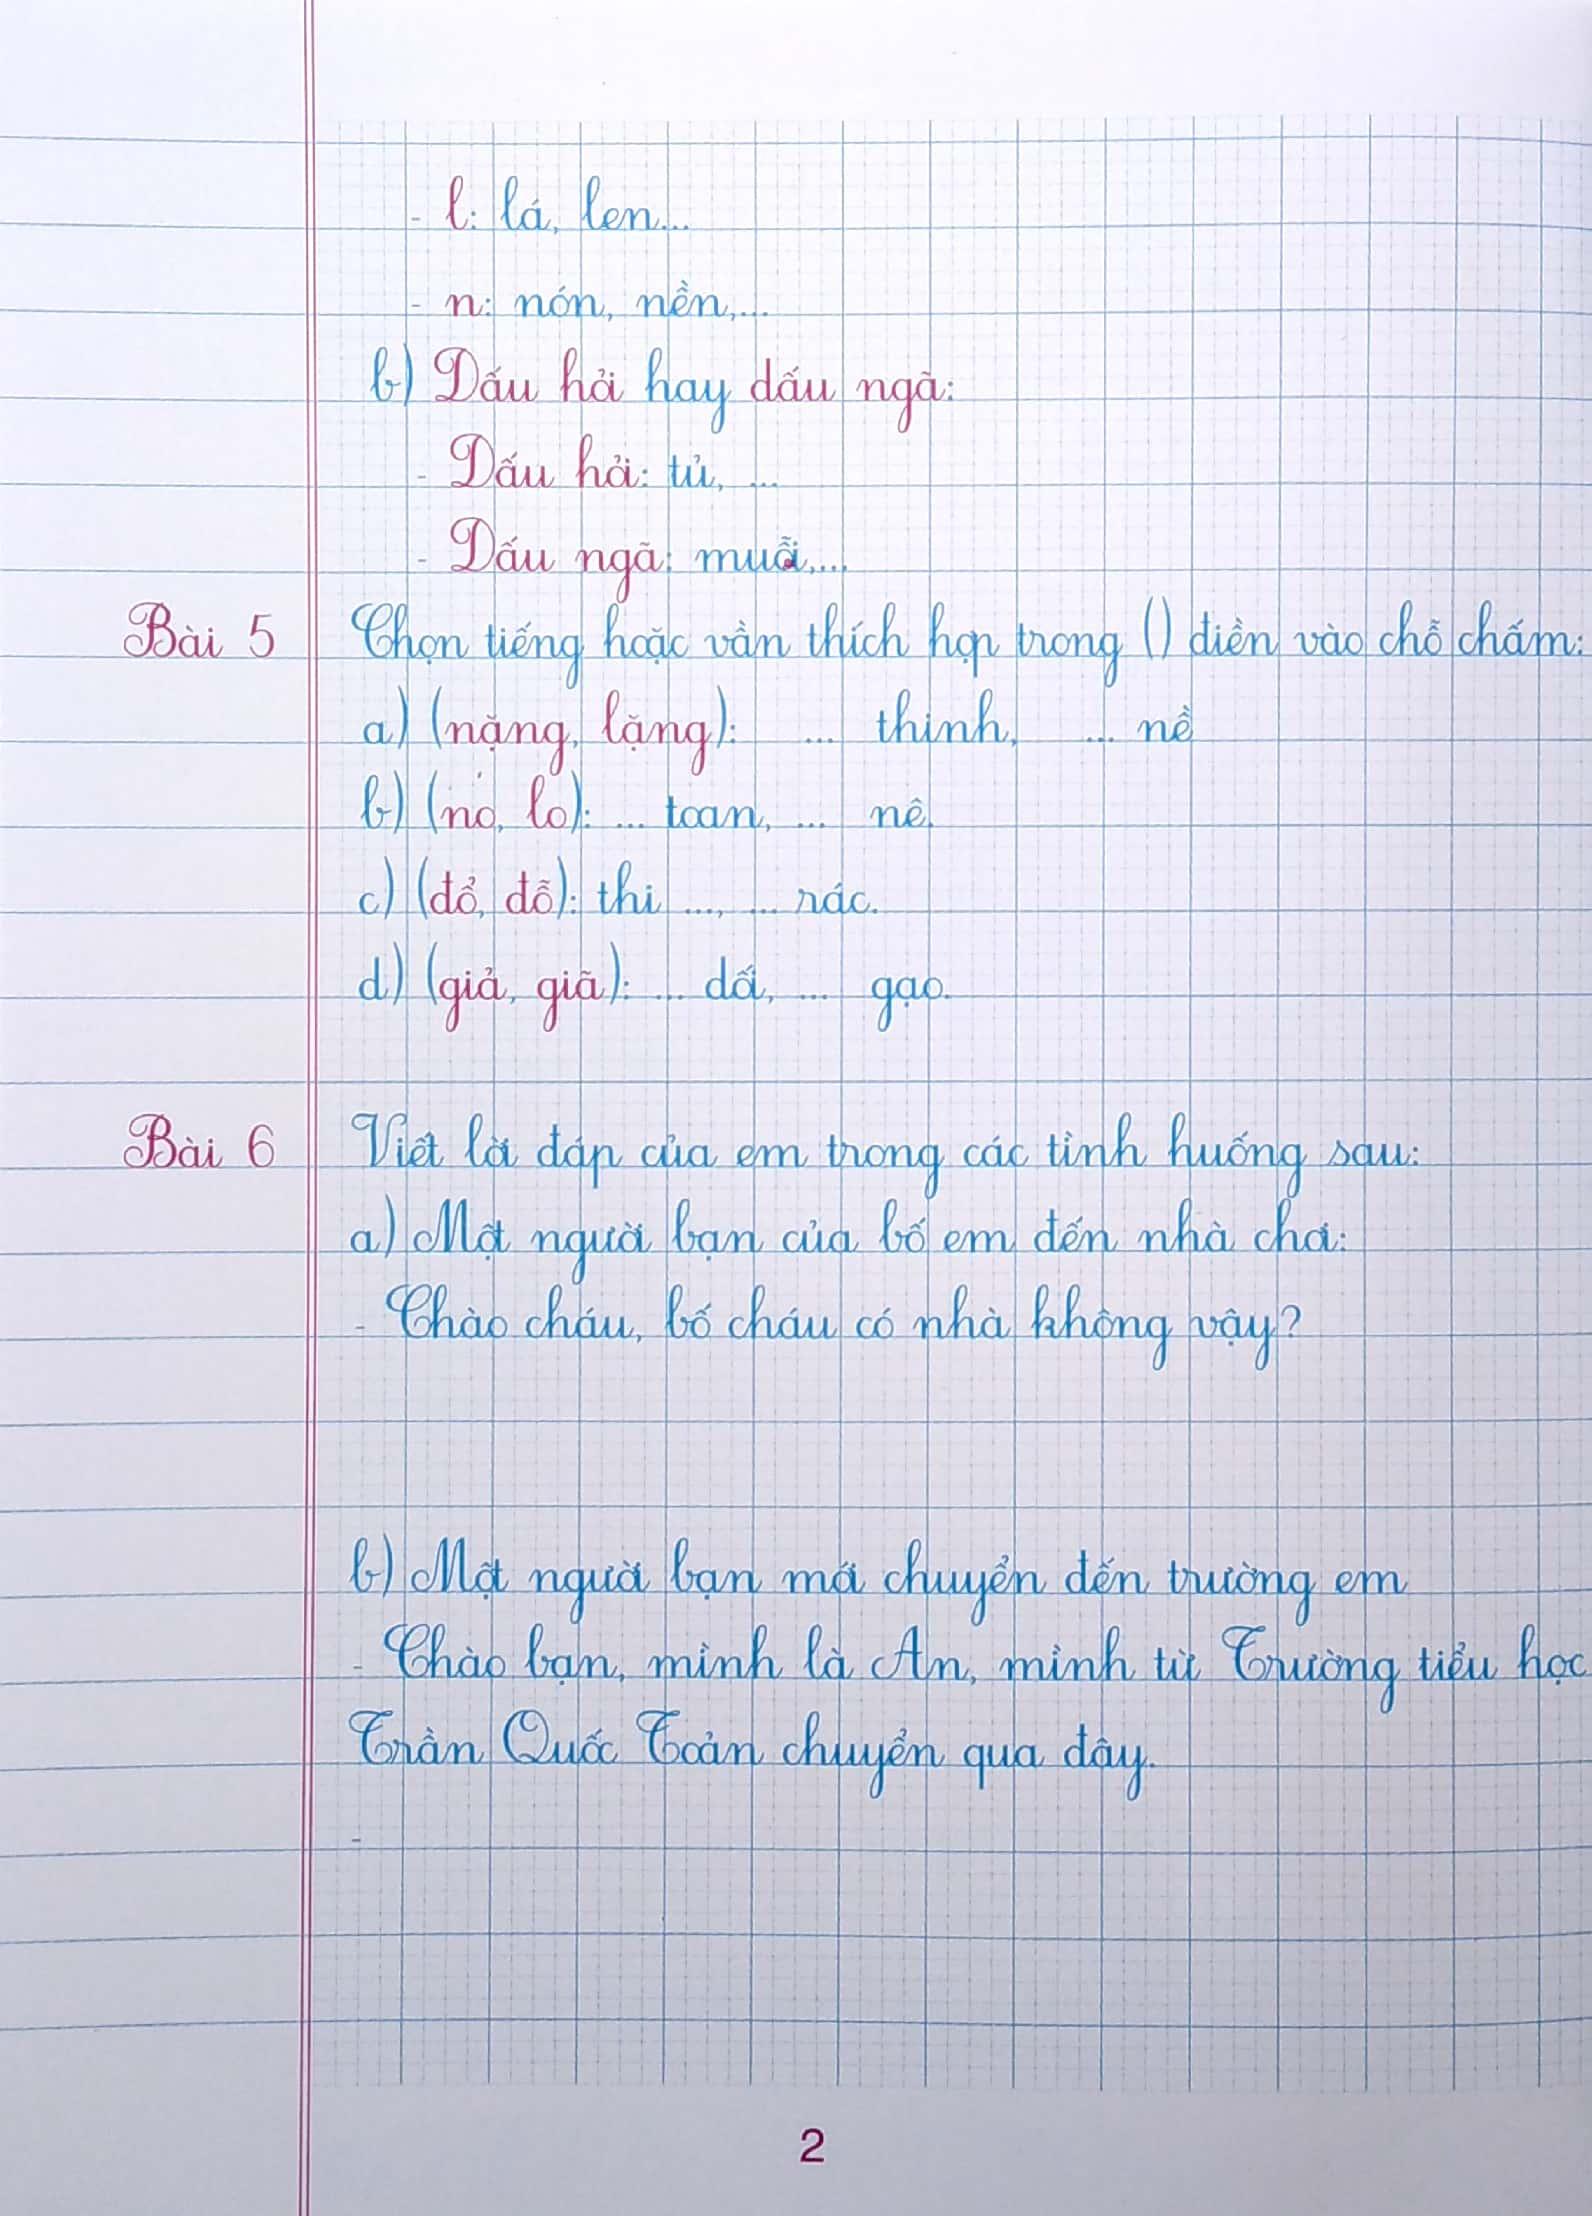 - l: lá, len...
- n: nón, nền,...
b) Dấu hỏi hay dấu ngã:
- Dấu hỏi: tủ, ...
- Dấu ngã: muỗi,...
Bài 5 Chọn tiếng hoặc vần thích hợp trong () điền vào chỗ chấm:
a) (nặng, lặng): ... thinh, ... nề
b) (no, lo): ... toan, ... nê.
c) (đổ, đỗ): thi ..., ... rác.
d) (giả, giã): ... dối, ... gạo.
Bài 6 Viết lời đáp của em trong các tình huống sau:
a) Một người bạn của bố em đến nhà chơi:
- Chào cháu, bố cháu có nhà không vậy?
b) Một người bạn mới chuyển đến trường em
- Chào bạn, mình là An, mình từ Trường tiểu học
Trần Quốc Toản chuyển qua đây.
-
2